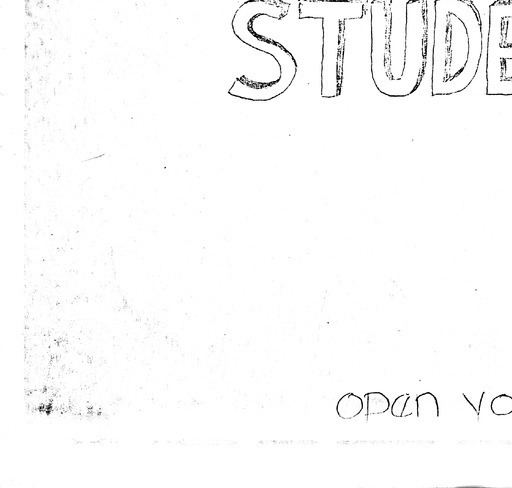 STUDE
open yo